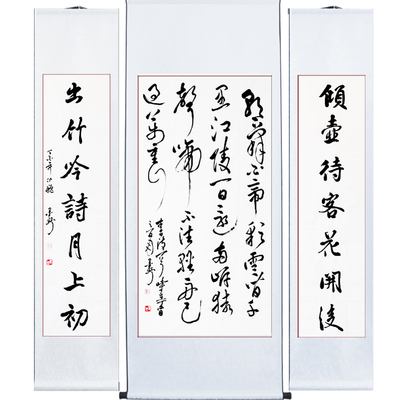 傾壺待客花開後
朝辭白帝彩雲間千
里江陵一日還兩岸猿
聲啼不住輕舟已
過萬重山
出竹吟詩月上初